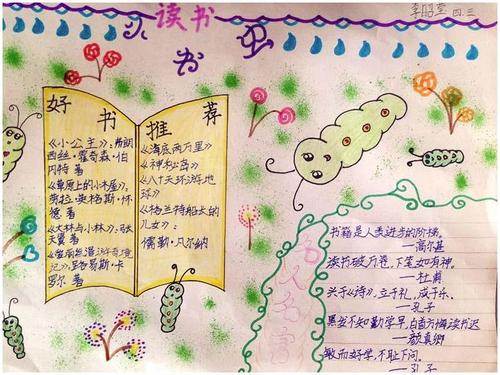 读书
小书虫
李昭莹 四.三
好书推荐
《小公主》:弗朗
西丝·霍奇森·伯
内特 著
《草原上的小木屋》:
劳拉·英格斯·怀
德 著
《大林与小林》:张
天翼 著
《爱丽丝漫游奇境
记》:路易斯·卡
罗尔 著
《海底两万里》
《神秘岛》
《八十天环游地
球》
《格兰特船长的
儿女》:
儒勒·凡尔纳
名人名言
书籍是人类进步的阶梯。
—高尔基
读书破万卷,下笔如有神。
—杜甫
兴于《诗》,立于礼,成于乐。
—孔子
黑发不知勤学早,白首方悔读书迟
—颜真卿
敏而好学,不耻下问。
—孔子